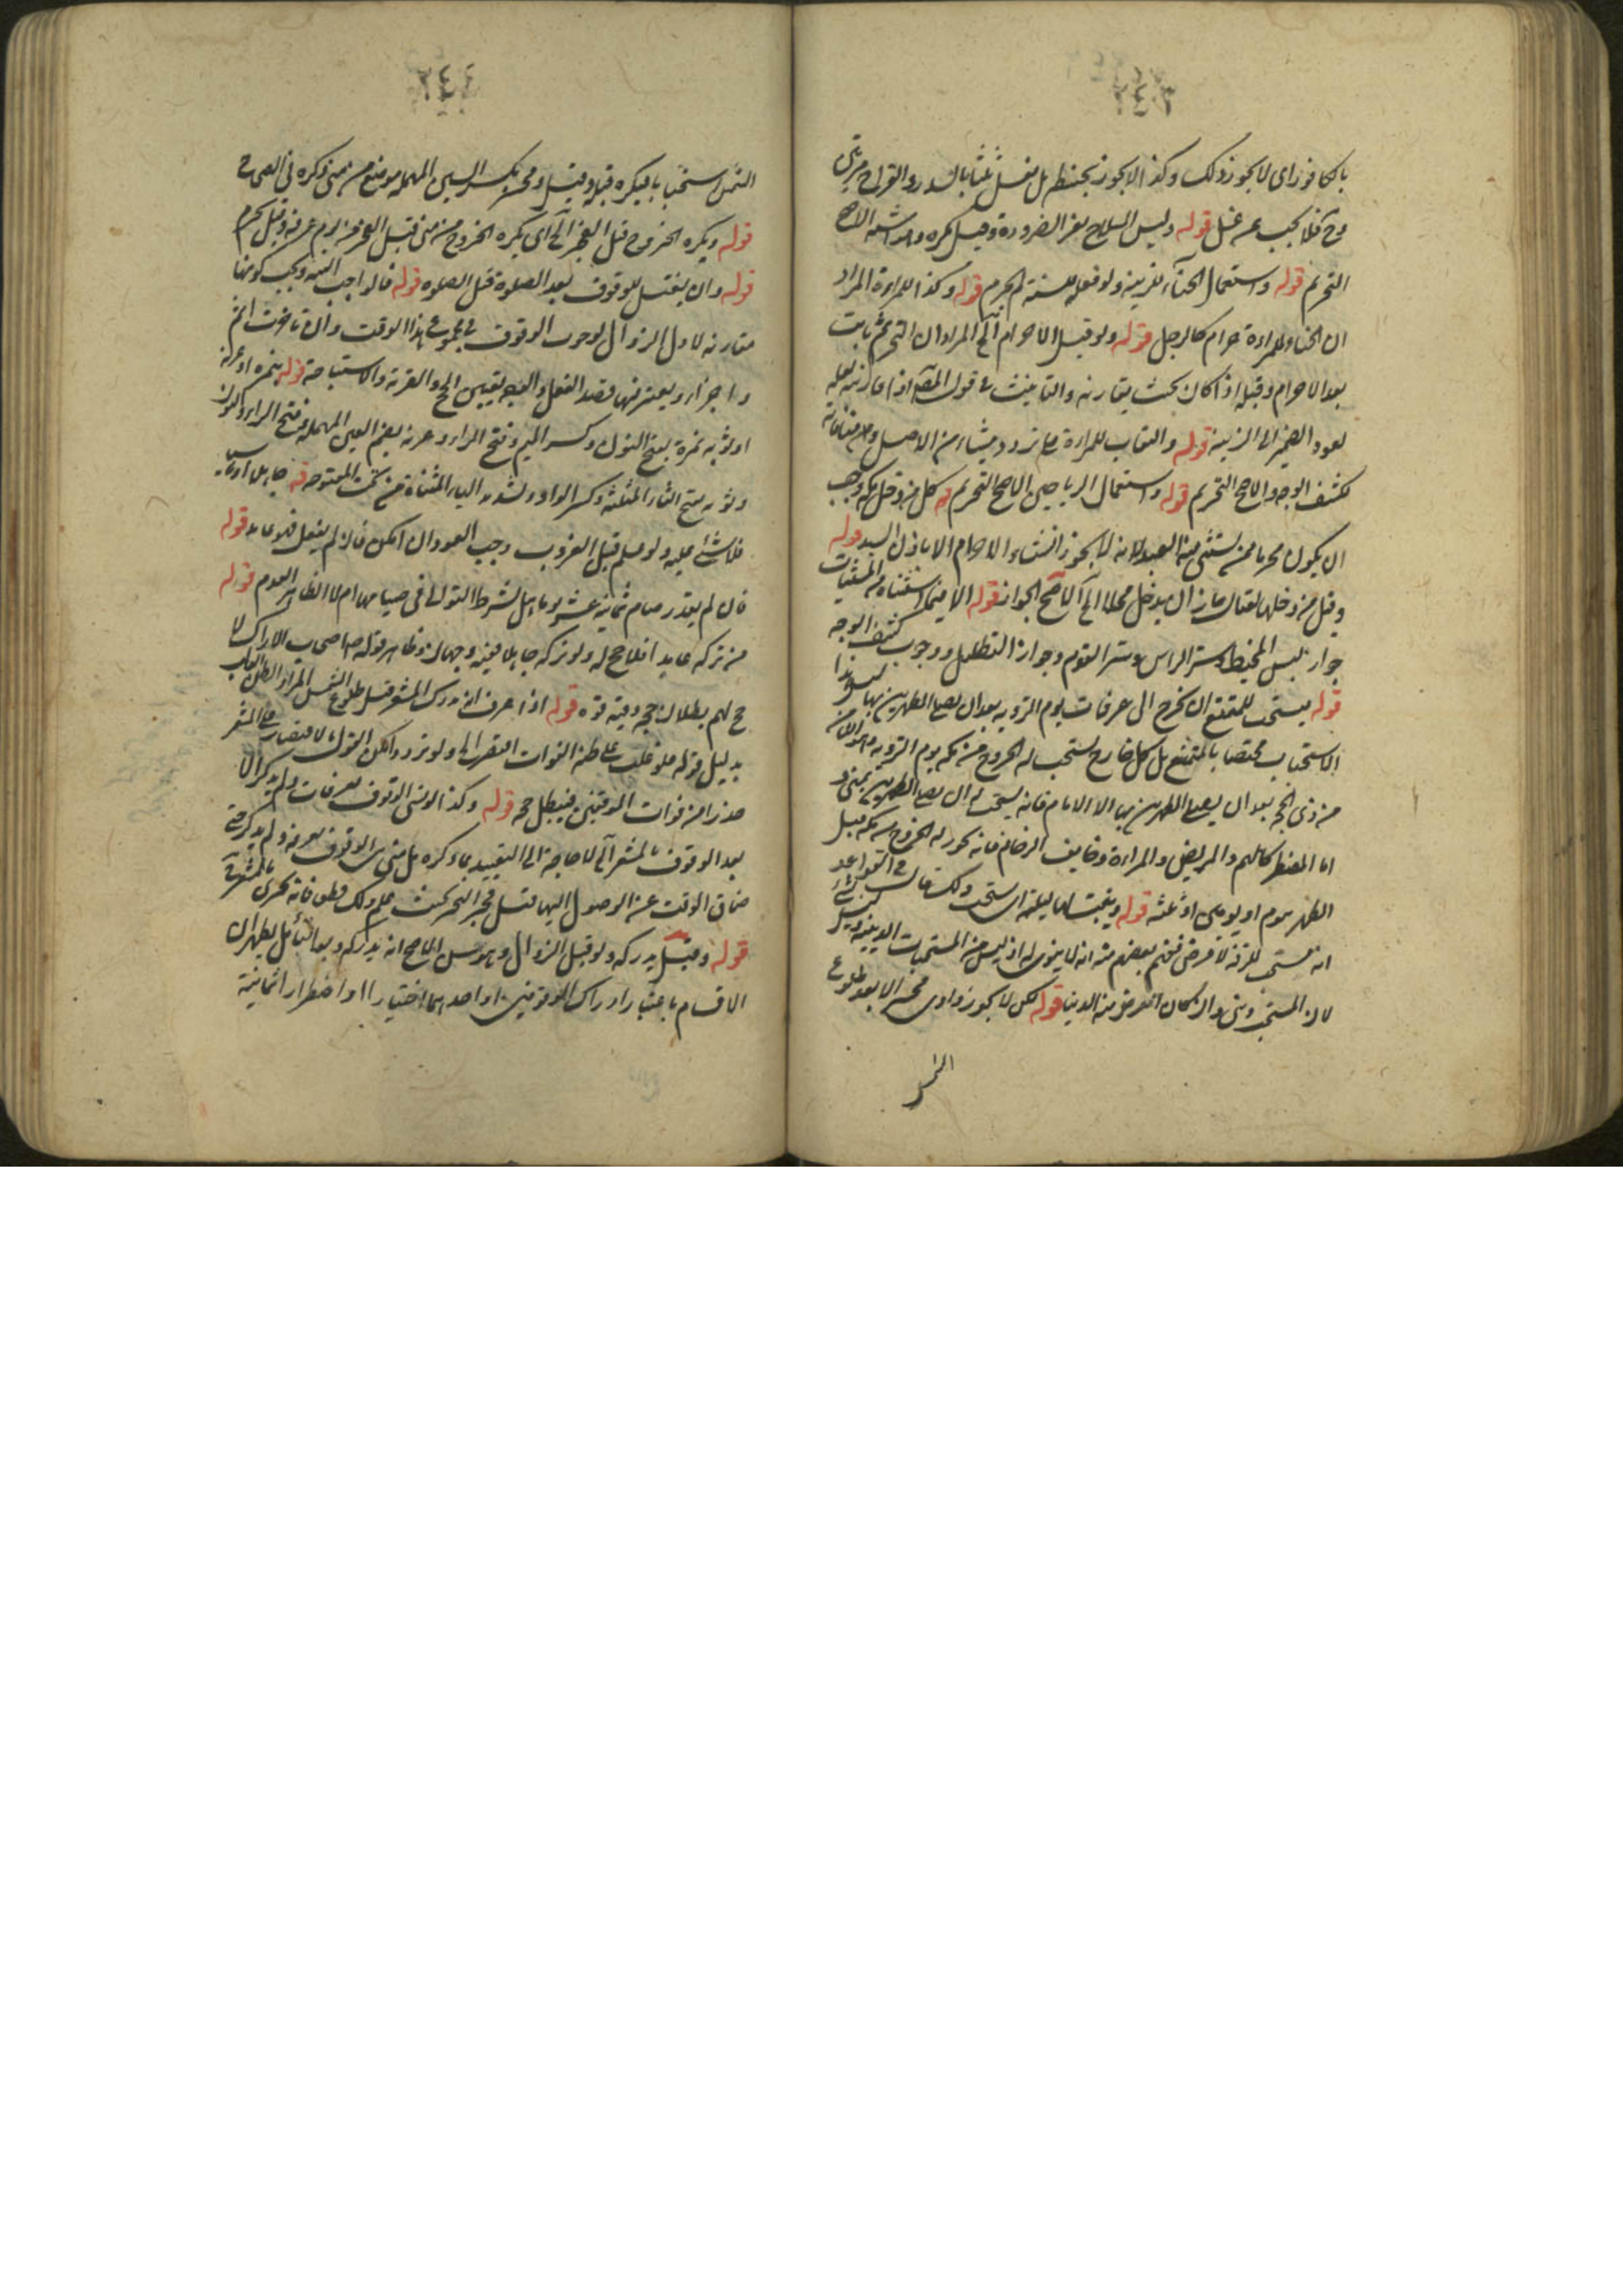 بالكافور اى لا يجوز ذلك وكذا لا يجوز بحنط بل يغسل ثلثا بالسدر والقراح مرتين
قوله ولبس السلاح لغير الضرورة وقيل يكره وهو الاشبه الاصح
التحريم قوله واستعمال الحناء للزينة ولو فعله للسنة لم يحرم قوله وكذا للمراة المراد
ان الحناء للمراة حرام كالرجل قوله ولو قبل الاحرام آلخ المراد ان التحريم ثابت
بعد الاحرام وقبله اذا كان بحيث يقارنه والتانيث فى قول المص اذا قارنته لعله
لعود الضمير الى الزينة قوله والنقاب للمراة على تردد ينشاء من الاصل ومن منافاته
لكشف الوجه والاصح التحريم قوله واستعمال الرياحين الاصح التحريم قوله كل من دخل مكة وجب
ان يكون محرما ممن يستثنى منه العبد لانه لا يجوز انشاء الاحرام الا باذن السيد قوله
وقيل من دخلها لقتال جاز ان يدخل محلا الخ الاصح الجواز قوله الا فيما استثناه من المستثنيات
جواز لبس المخيط وستر الراس وستر القدم وجواز التظليل ووجوب كشف الوجه
قوله يستحب للمتمتع ان يخرج الى عرفات يوم التروية بعد ان يصلى الظهرين بها ليس هذا
الاستحباب مختصا بالمتمتع بل كل خارج يستحب له الخروج من مكة يوم التروية وهو الثامن
من ذى الحجة بعد ان يصلى الظهرين بها الا الامام فانه يستحب له ان يصلى الظهرين بمنى و
اما المضطر كالهم والمريض والمراة وخايف الزحام فانه يجوز له الخروج من مكة قبل
الظهر بيوم او يومين او ثلثة قوله ويبيت بها ليلته اى يستحب ذلك قال فى القواعد
انه مستحب للترفه لا فرض ففهم بعضهم منه انه لا ينوى له اذ ليس من المستحبات الدينية وليس بشئ
لان المستحب دينى وان كان الغرض منه الدنيا قوله لكن لا يجوز وادى محسر الا بعد طلوع
الشمس
الشمس استحبابا فيكره قبله وقيل ومحسر بكسر السين المهملة موضع من منى ذكره فى الصحاح
قوله ويكره الخروج قبل الفجر آلخ اى يكره الخروج من منى قبل الفجر من يوم عرفة وقيل يحرم
قوله وان يغتسل للوقوف بعد الصلوة قبل الصلوه قوله فالواجب النية ويجب كونها
مقارنة لاول الزوال لوجوب الوقوف فى مجموع هذا الوقت وان تاخرت اثم
واجزاء ويعتبر فيها قصد الفعل والوجه وتعيين الحج والقربة والاستباحة قوله بنمرة او عرنة
او ثوية نمرة بفتح النون وكسر الميم وفتح الراء وعرنة بضم العين المهملة وفتح الراء والنون
وثوية بفتح الثاء المثلثة وكسر الواو وتشديد الياء المثناة من تحت المفتوحة قوله جاهلا او ناسيا
فلا شئ عليه ولو علم قبل الغروب وجب العود ان امكن فان لم يفعل فهو عامد قوله
فان لم يقدر صام ثمانية عشر يوما هل يشترط التوالى فى صيامها ام لا الظاهر العدم قوله
من تركه عامدا فلا حج له ولو تركه جاهلا ففيه وجهان وظاهر قوله اصحاب الاراك لا
حج لهم بطلان حجه وفيه قوة قوله اذا عرف انه يدرك المشعر قبل طلوع الشمس المراد الظن الغالب
بدليل قوله فلو غلب على ظنه الفوات اقتصر الخ ولو تردد امكن القول بالاقتصار على المشعر
حذرا من فوات الموقفين فيبطل حجه قوله وكذا لو نسى الوقوف بعرفات ولم يذكر الا
بعد الوقوف بالمشعر آلخ لا حاجة الى التقييد بما ذكره بل متى نسى الوقوف بعرفة ولم يذكر حتى
ضاق الوقت عن الوصول اليها قبل فجر النحر بحيث علم ذلك قطع فانه يجزى بالمشعر
قوله وقيل يدركه ولو قبل الزوال وهو حسن الاصح انه يدركه وبعد التأمل يظهر ان
الاقسام باعتبار ادراك الموقفين او احدهما اختيارا او اضطرارا ثمانية